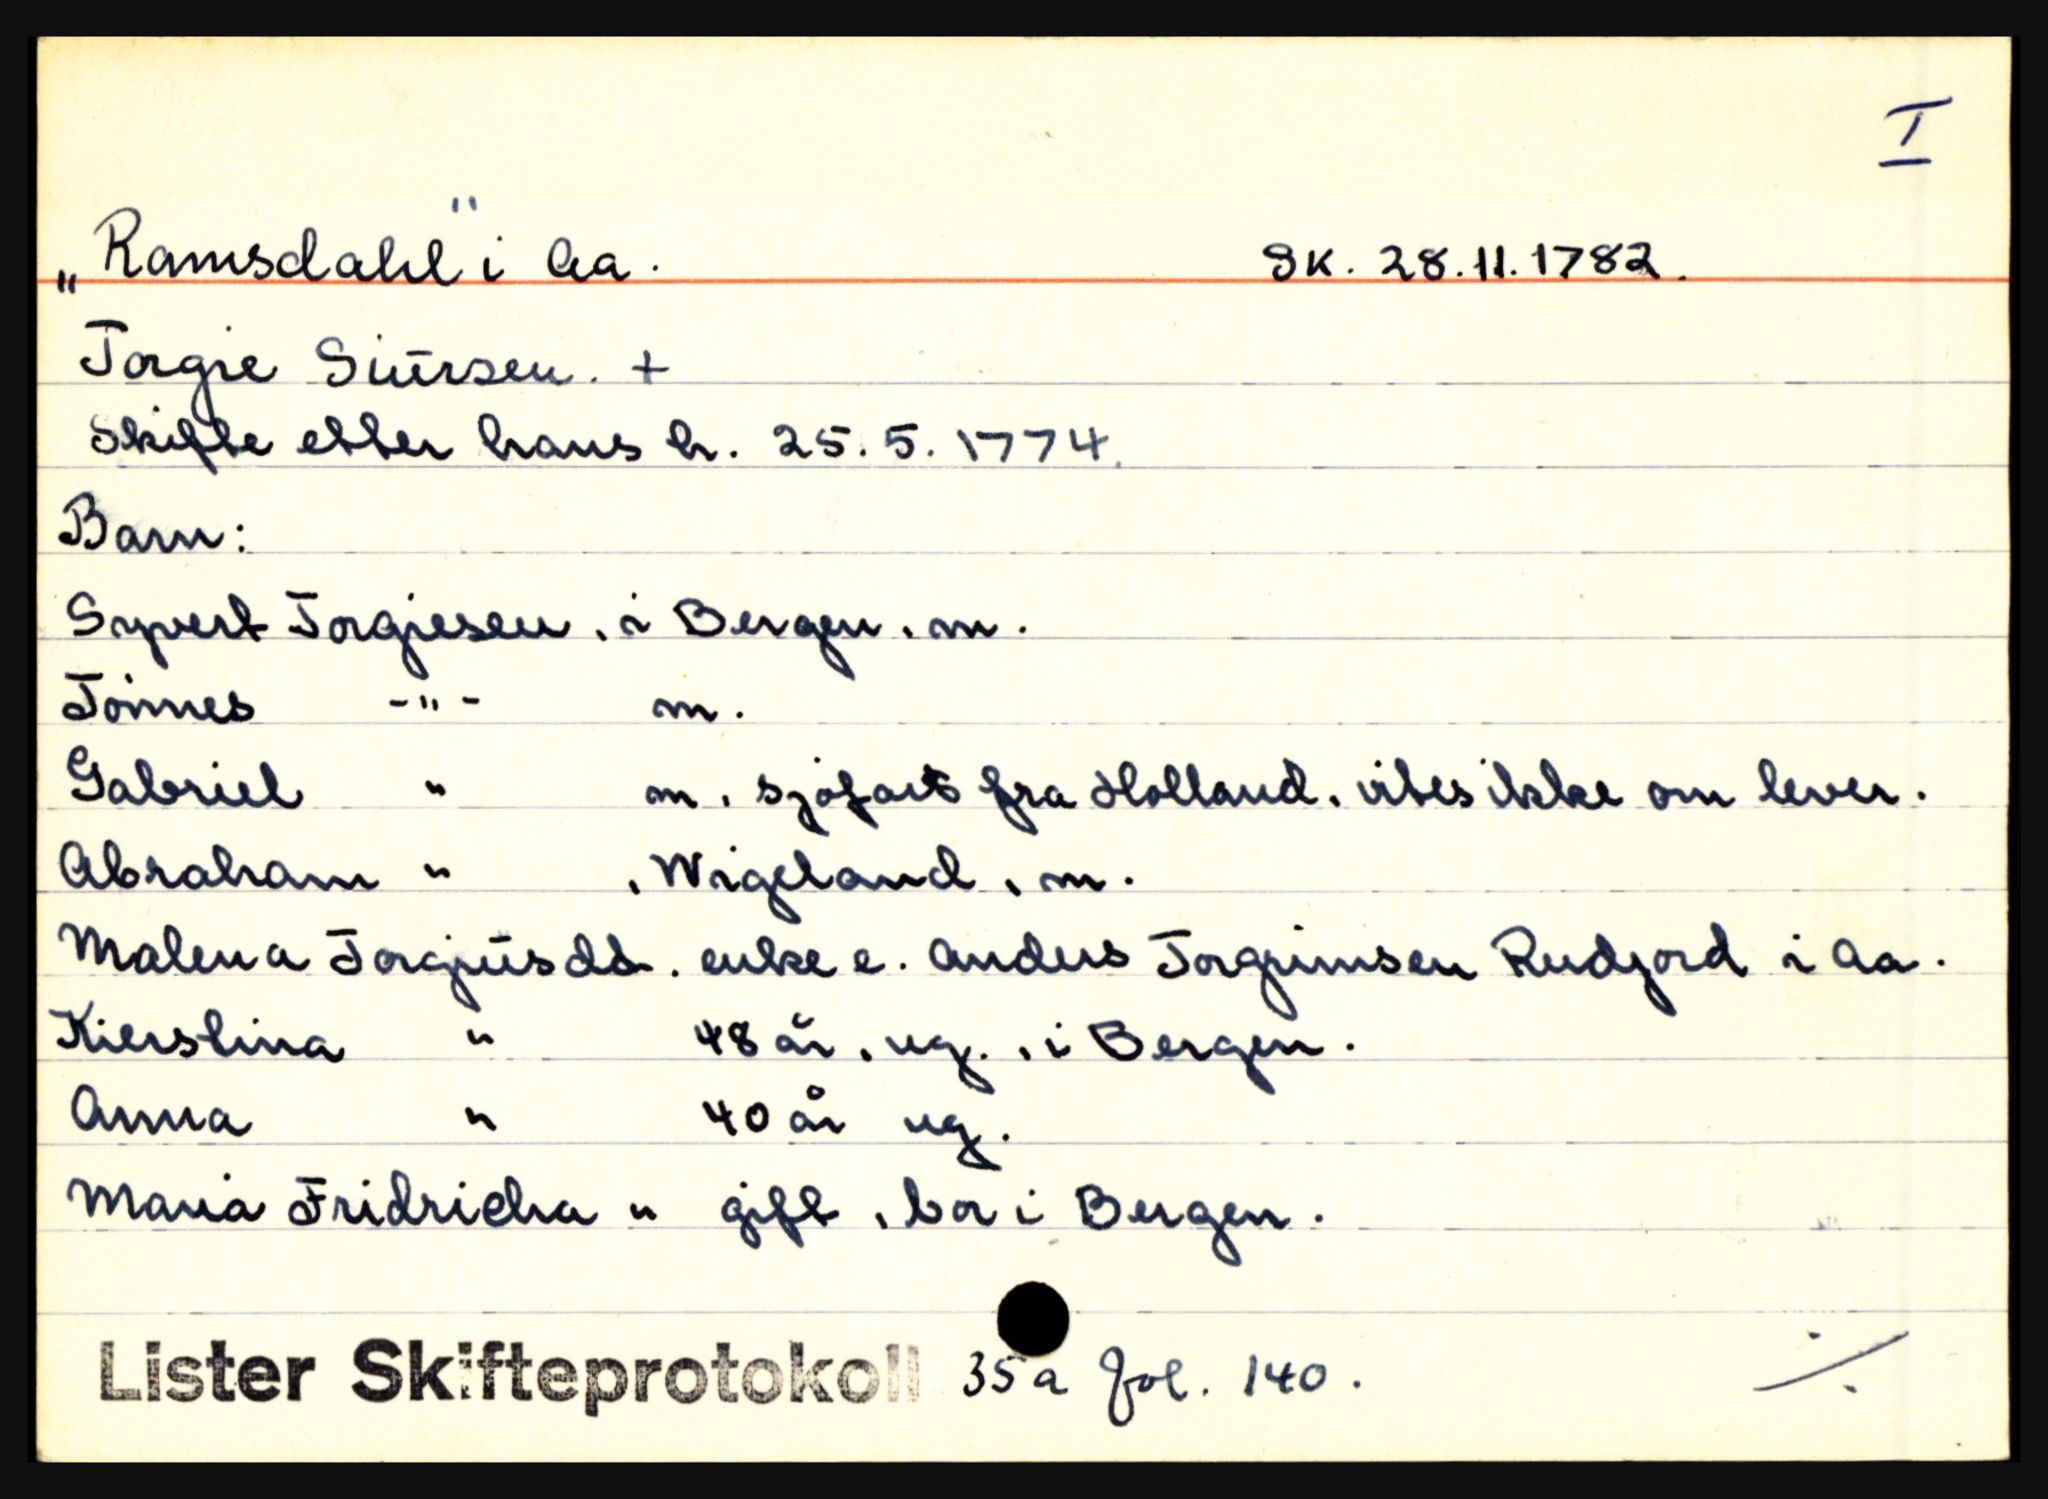 I
„Ramsdahl" i Aa. SK. 28.11.1782.
Torgie Siúrsen. +
Skifte etter hans h. 25.5.1774.
Barn:
Syvert Torgiesen, i Bergen, m.
Tönnes -"- m.
Gabriel " m, sjøfart fra Holland, vites ikke om lever.
Abraham " , Wigeland, m.
Malena Torgiúsdt. enke e. Anders Torgrimsen Rudjord i Aa.
Kierstina " 48 år, ug., i Bergen.
Anna " 40 år ug.
Maria Fridricha " gift, bor i Bergen.
Lister Skifteprotokoll 35a fol. 140. ./.